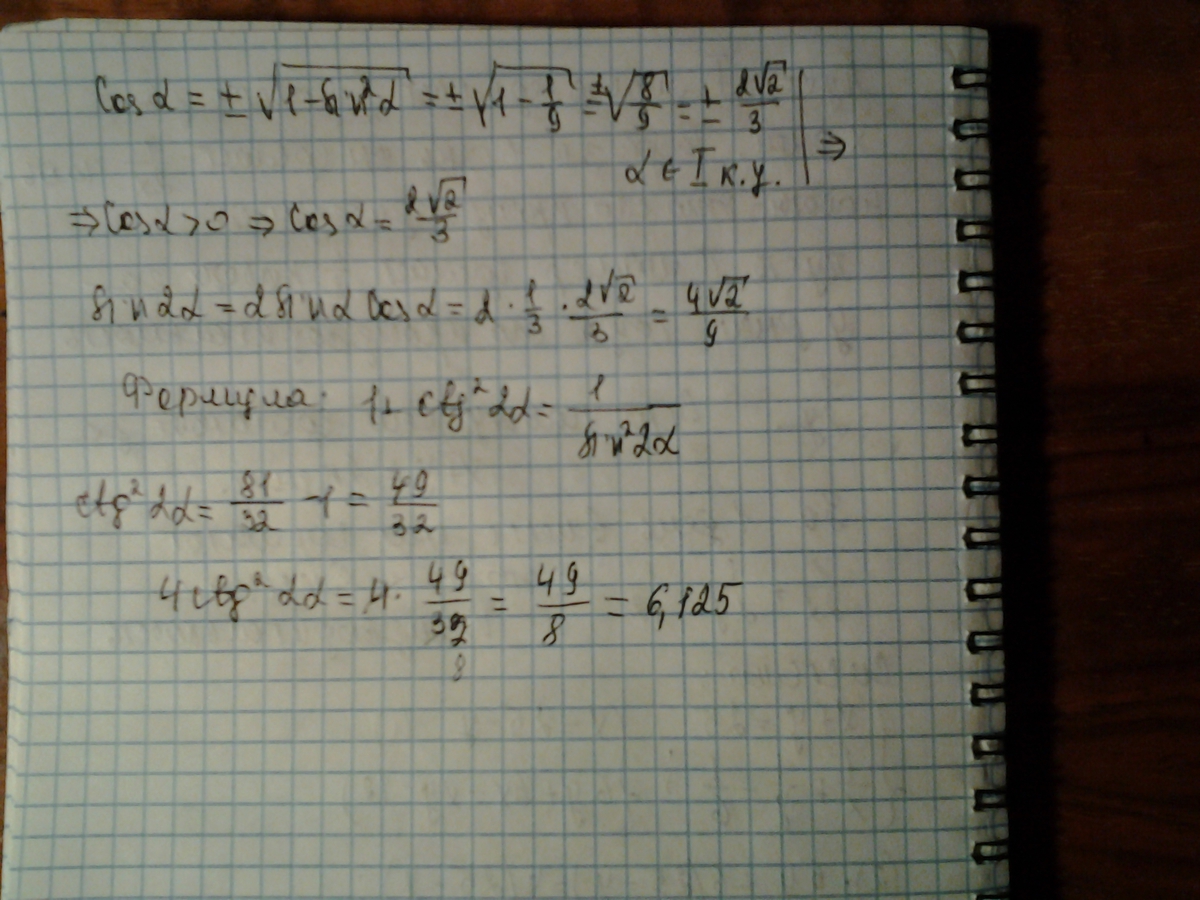 Cos α = ± √(1 - sin²α) = ± √(1 - 1/9) = ± √(8/9) = ± 2√2/3 | ⇒
α ∈ I к.у.
⇒ Cos α > 0 ⇒ Cos α = 2√2/3
sin 2α = 2 sin α Cos α = 2 · 1/3 · 2√2/3 = 4√2/9
Формула: 1 + ctg² 2α = 1/sin² 2α
ctg² 2α = 81/32 - 1 = 49/32
4 ctg² 2α = 4 · 49/32 = 49/8 = 6,125
8